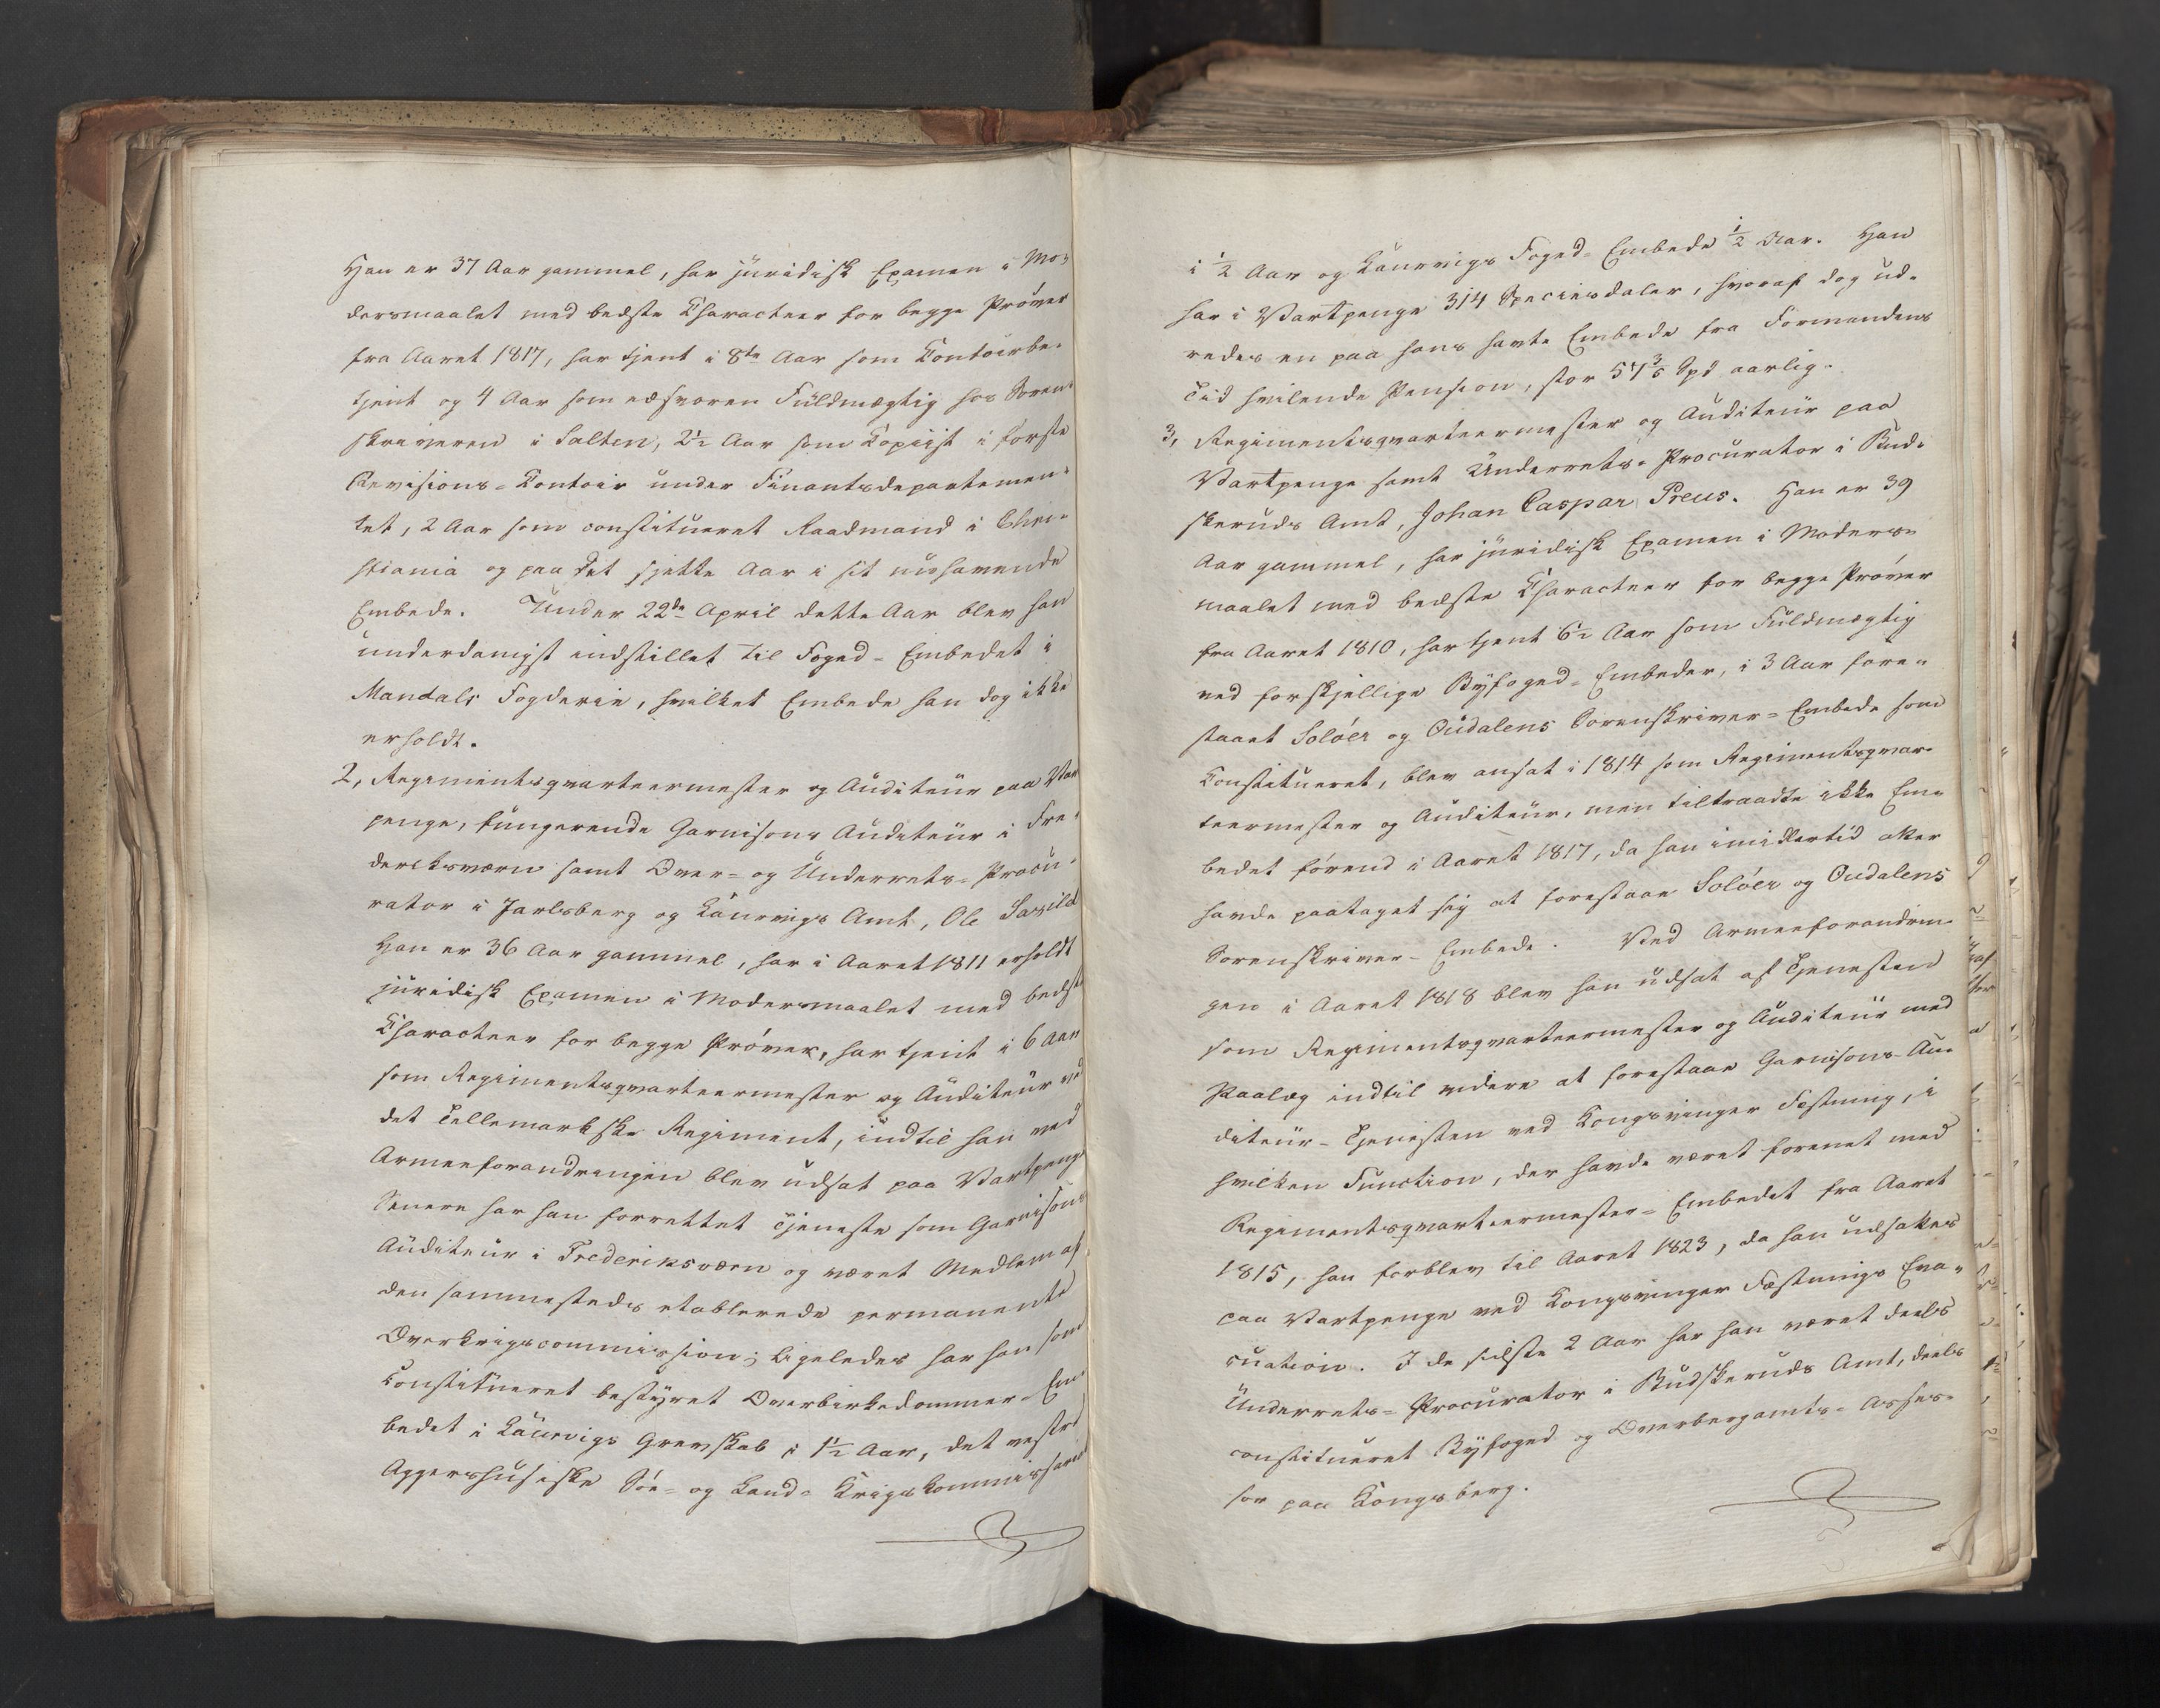 Han er 37 Aar gammel, har juridisk Examen i Mo-
dersmaalet med bedste Characteer for begge Prøver
fra Aaret 1817, har tjent i 8te Aar som Contoirbe-
tjent og 4 Aar som edsvoren Fuldmægtig hos Soren-
skriveren i Salten, 2½ Aar som Copiist i første
Revisions-Contoir under Finantsdepartemen-
tet, 2 Aar som constitueret Raadmand i Chri-
stiania og paa det sjette Aar i sit nuhavende
Embede. Under 22de April dette Aar blev han
underdanigst indstillet til Foged-Embedet i
Mandals Fogderie, hvilket Embede han dog ikke
erholdt.
2, Regimentsqvarteermester og Auditeur paa Vart
penge, fungerende Garnisons Auditeur i Fre-
deriksværn samt Over- og Underrets-Procu-
rator i Jarlsberg og Laurvigs Amt, Ole Savild
Han er 36 Aar gammel, har i Aaret 1811 erholdt
juridisk Examen i Modersmaalet med bedste
Characteer for begge Prøver, har tjent i 6 Aar
som Regimentsqvarteermester og Auditeur ved
det Tellemarkske Regiment, indtil han ved
Armeeforandringen blev udsat paa Vartpenge
Senere har han forrettet Tjeneste som Garnisons
Auditeur i Frederiksværn og været Medlem af
den sammesteds etablerede permanente
Overkrigscommission; ligeledes har han som
Constitueret bestyret Overbirkedommer-Em-
bedet i Laurvigs Grevskab i 1½ Aar, det vestre
Aggershusiske Søe- og Land-Krigskommissariat
i ½ Aar og Laurvigs Foged-Embede ½ Aar. Han
har i Vartpenge 314 Speciesdaler, hvoraf dog ud-
redes en paa hans havte Embede fra Formandens
Tid hvilende Pension, stor 57 3/5 Spd aarlig.
3, Regimentsqvarteermester og Auditeur paa
Vartpenge samt Underrets-Procurator i Bud-
skeruds Amt, Johan Caspar Preus. Han er 39
Aar gammel, har juridisk Examen i Moders-
maalet med bedste Characteer for begge Prøver
fra Aaret 1810, har tjent 6½ Aar som Fuldmægtig
ved forskjellige Byfoged-Embeder, i 3 Aar fore-
staaet Soløer og Oudalens Sorenskriver-Embede som
Constitueret, blev ansat i 1814 som Regimentsqvar-
teermester og Auditeur, men tiltraadte ikke Em-
bedet førend i Aaret 1817, da han imidlertid atter
havde paataget sig at forestaae Soløer og Oudalens
Sorenskriver-Embede. Ved Armeeforandrin-
gen i Aaret 1818 blev han udsat af Tjenesten
som Regimentsqvarteermester og Auditeur med
Paalæg indtil videre at forestaae Garnisons-Au-
diteur-Tjenesten ved Kongsvinger Fæstning, i
hvilken Function, der havde været forenet med
Regimentsqvarteermester-Embedet fra Aaret
1815, han forblev til Aaret 1823, da han udsattes
paa Vartpenge ved Kongsvinger Fæstnings Eva-
cuation. I de sidste 2 Aar har han været deels
Underrets-Procurator i Budskeruds Amt, deels
constitueret Byfoged og Overbergamts-Asses-
sor paa Kongsberg.